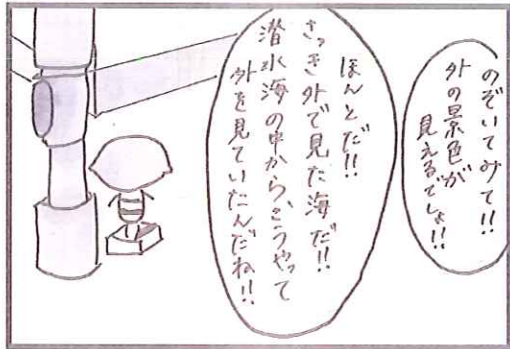 のぞいてみて!!
外の景色が
見えるでしょ!!
ほんとだ!!
さっき外で見た海だ!!
潜水海の中から、こうやって
外を見ていたんだね!!